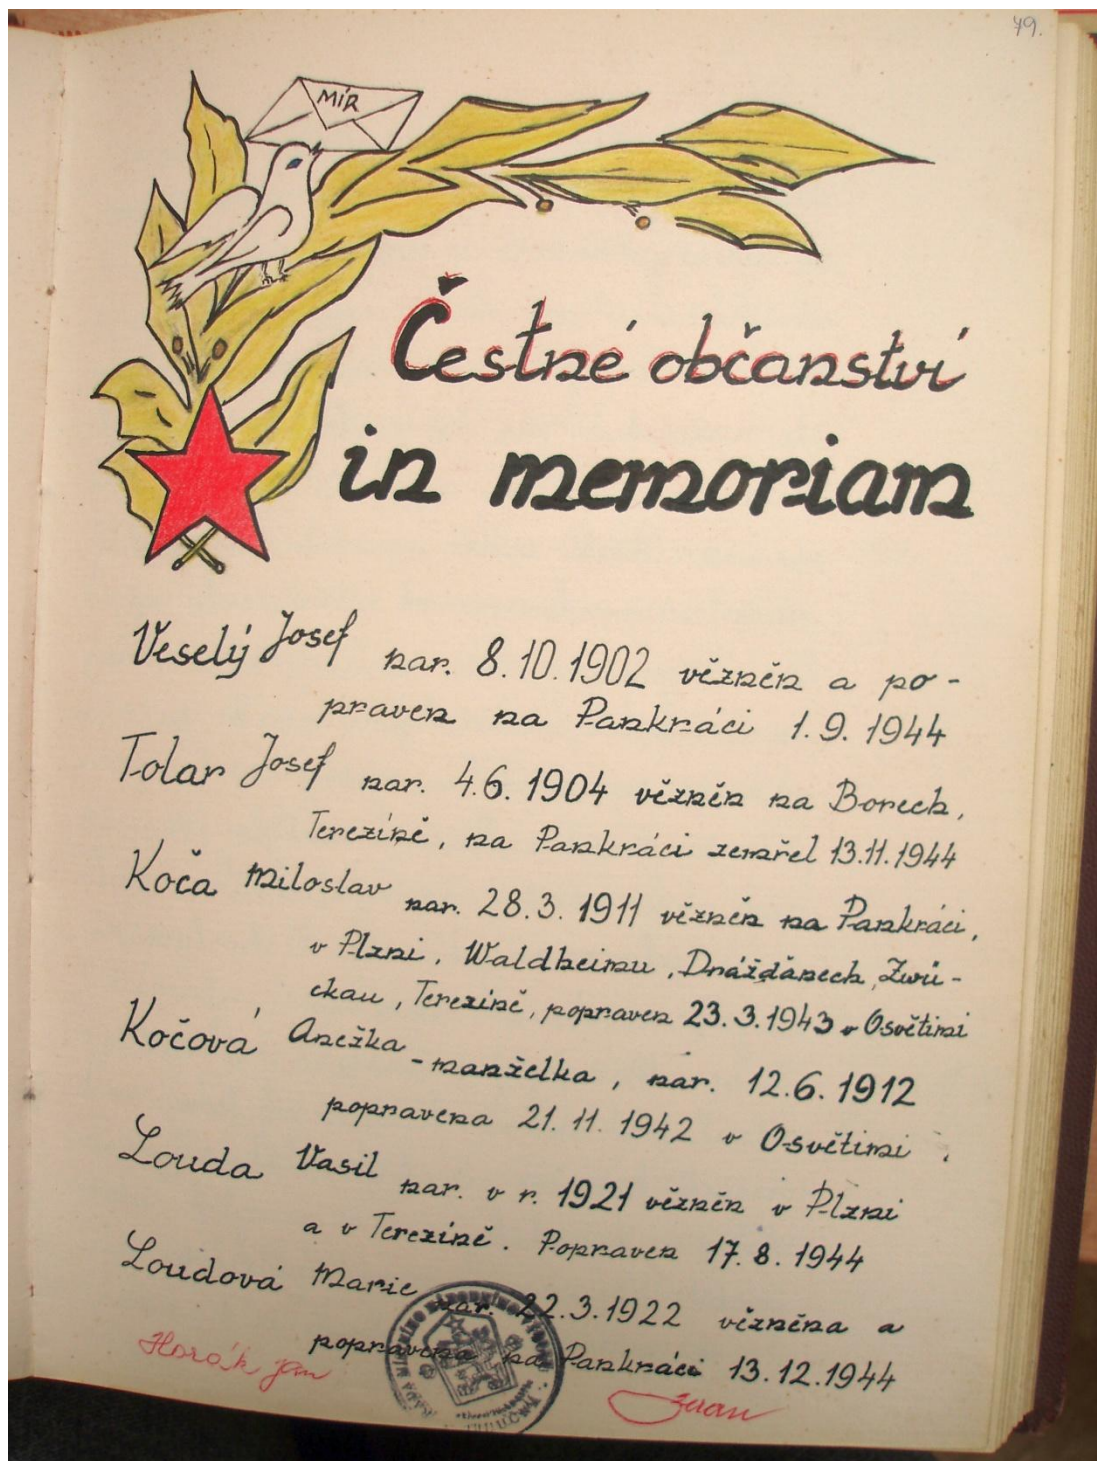 79.
MÍR
Čestné občanství
in memoriam
Veselý Josef nar. 8.10.1902 vězněn a po-
praven na Pankráci 1.9.1944
Tolar Josef nar. 4.6.1904 vězněn na Borech,
Terezíně, na Pankráci zemřel 13.11.1944
Koča Miloslav nar. 28.3.1911 vězněn na Pankráci,
v Plzni, Waldheimu, Drážďanech, Zwi-
ckau, Terezíně, popraven 23.3.1943 v Osvětimi
Kočová Anežka - manželka, nar. 12.6.1912
popravena 21.11.1942 v Osvětimi.
Louda Vasil nar. v r. 1921 vězněn v Plzni
a v Terezíně. Popraven 17.8.1944
Loudová Marie nar. 22.3.1922 vězněna a
popravena na Pankráci 13.12.1944
Horák Jan